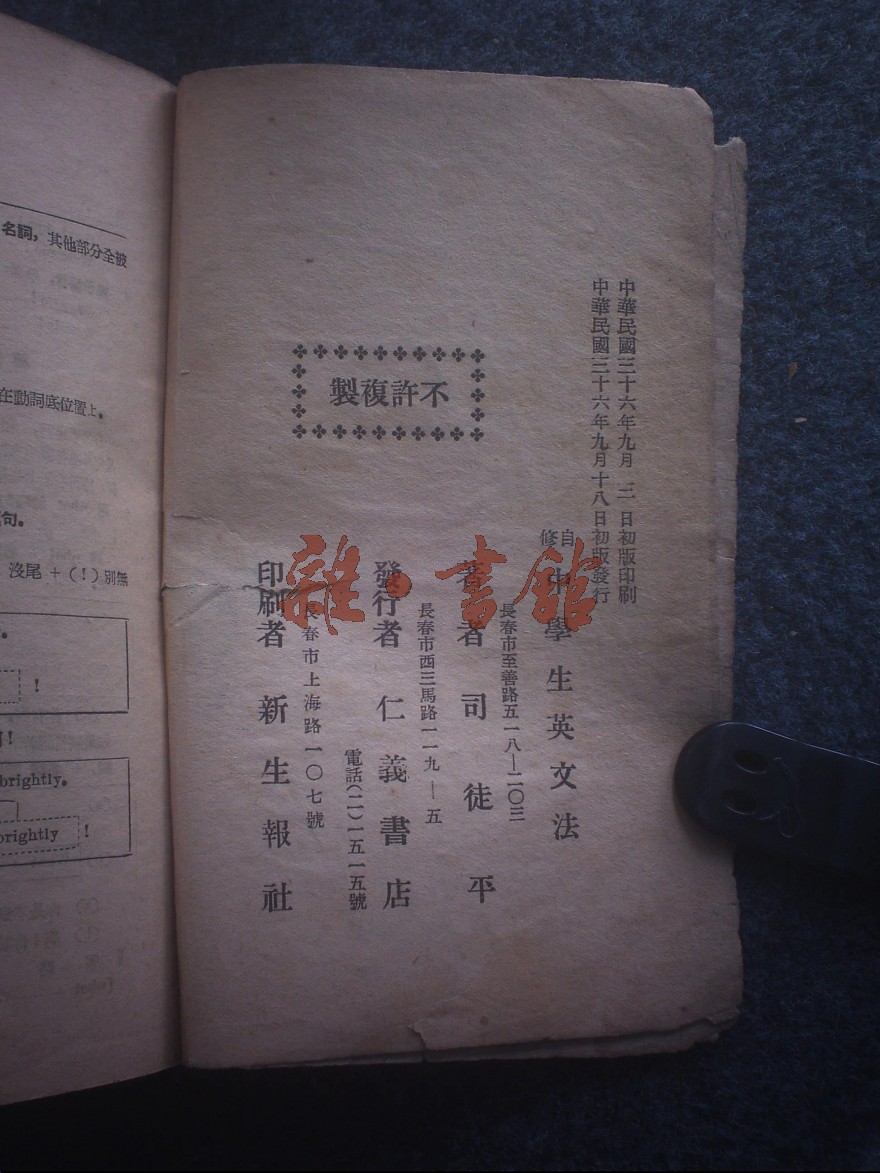 中華民國三十六年九月 二 日初版印刷
中華民國三十六年九月十八日初版發行
自修 中學生英文法
長春市至善路五一八—二〇三
著者 司徒平
長春市西三馬路一一九—五
發行者 仁義書店
電話(二)一五一五號
長春市上海路一〇七號
印刷者 新生報社
不許複製
雜·書館
名詞，其他部分全被
在動詞底位置上。
句。
沒尾 + (！) 別無
!
!
brightly.
brightly !